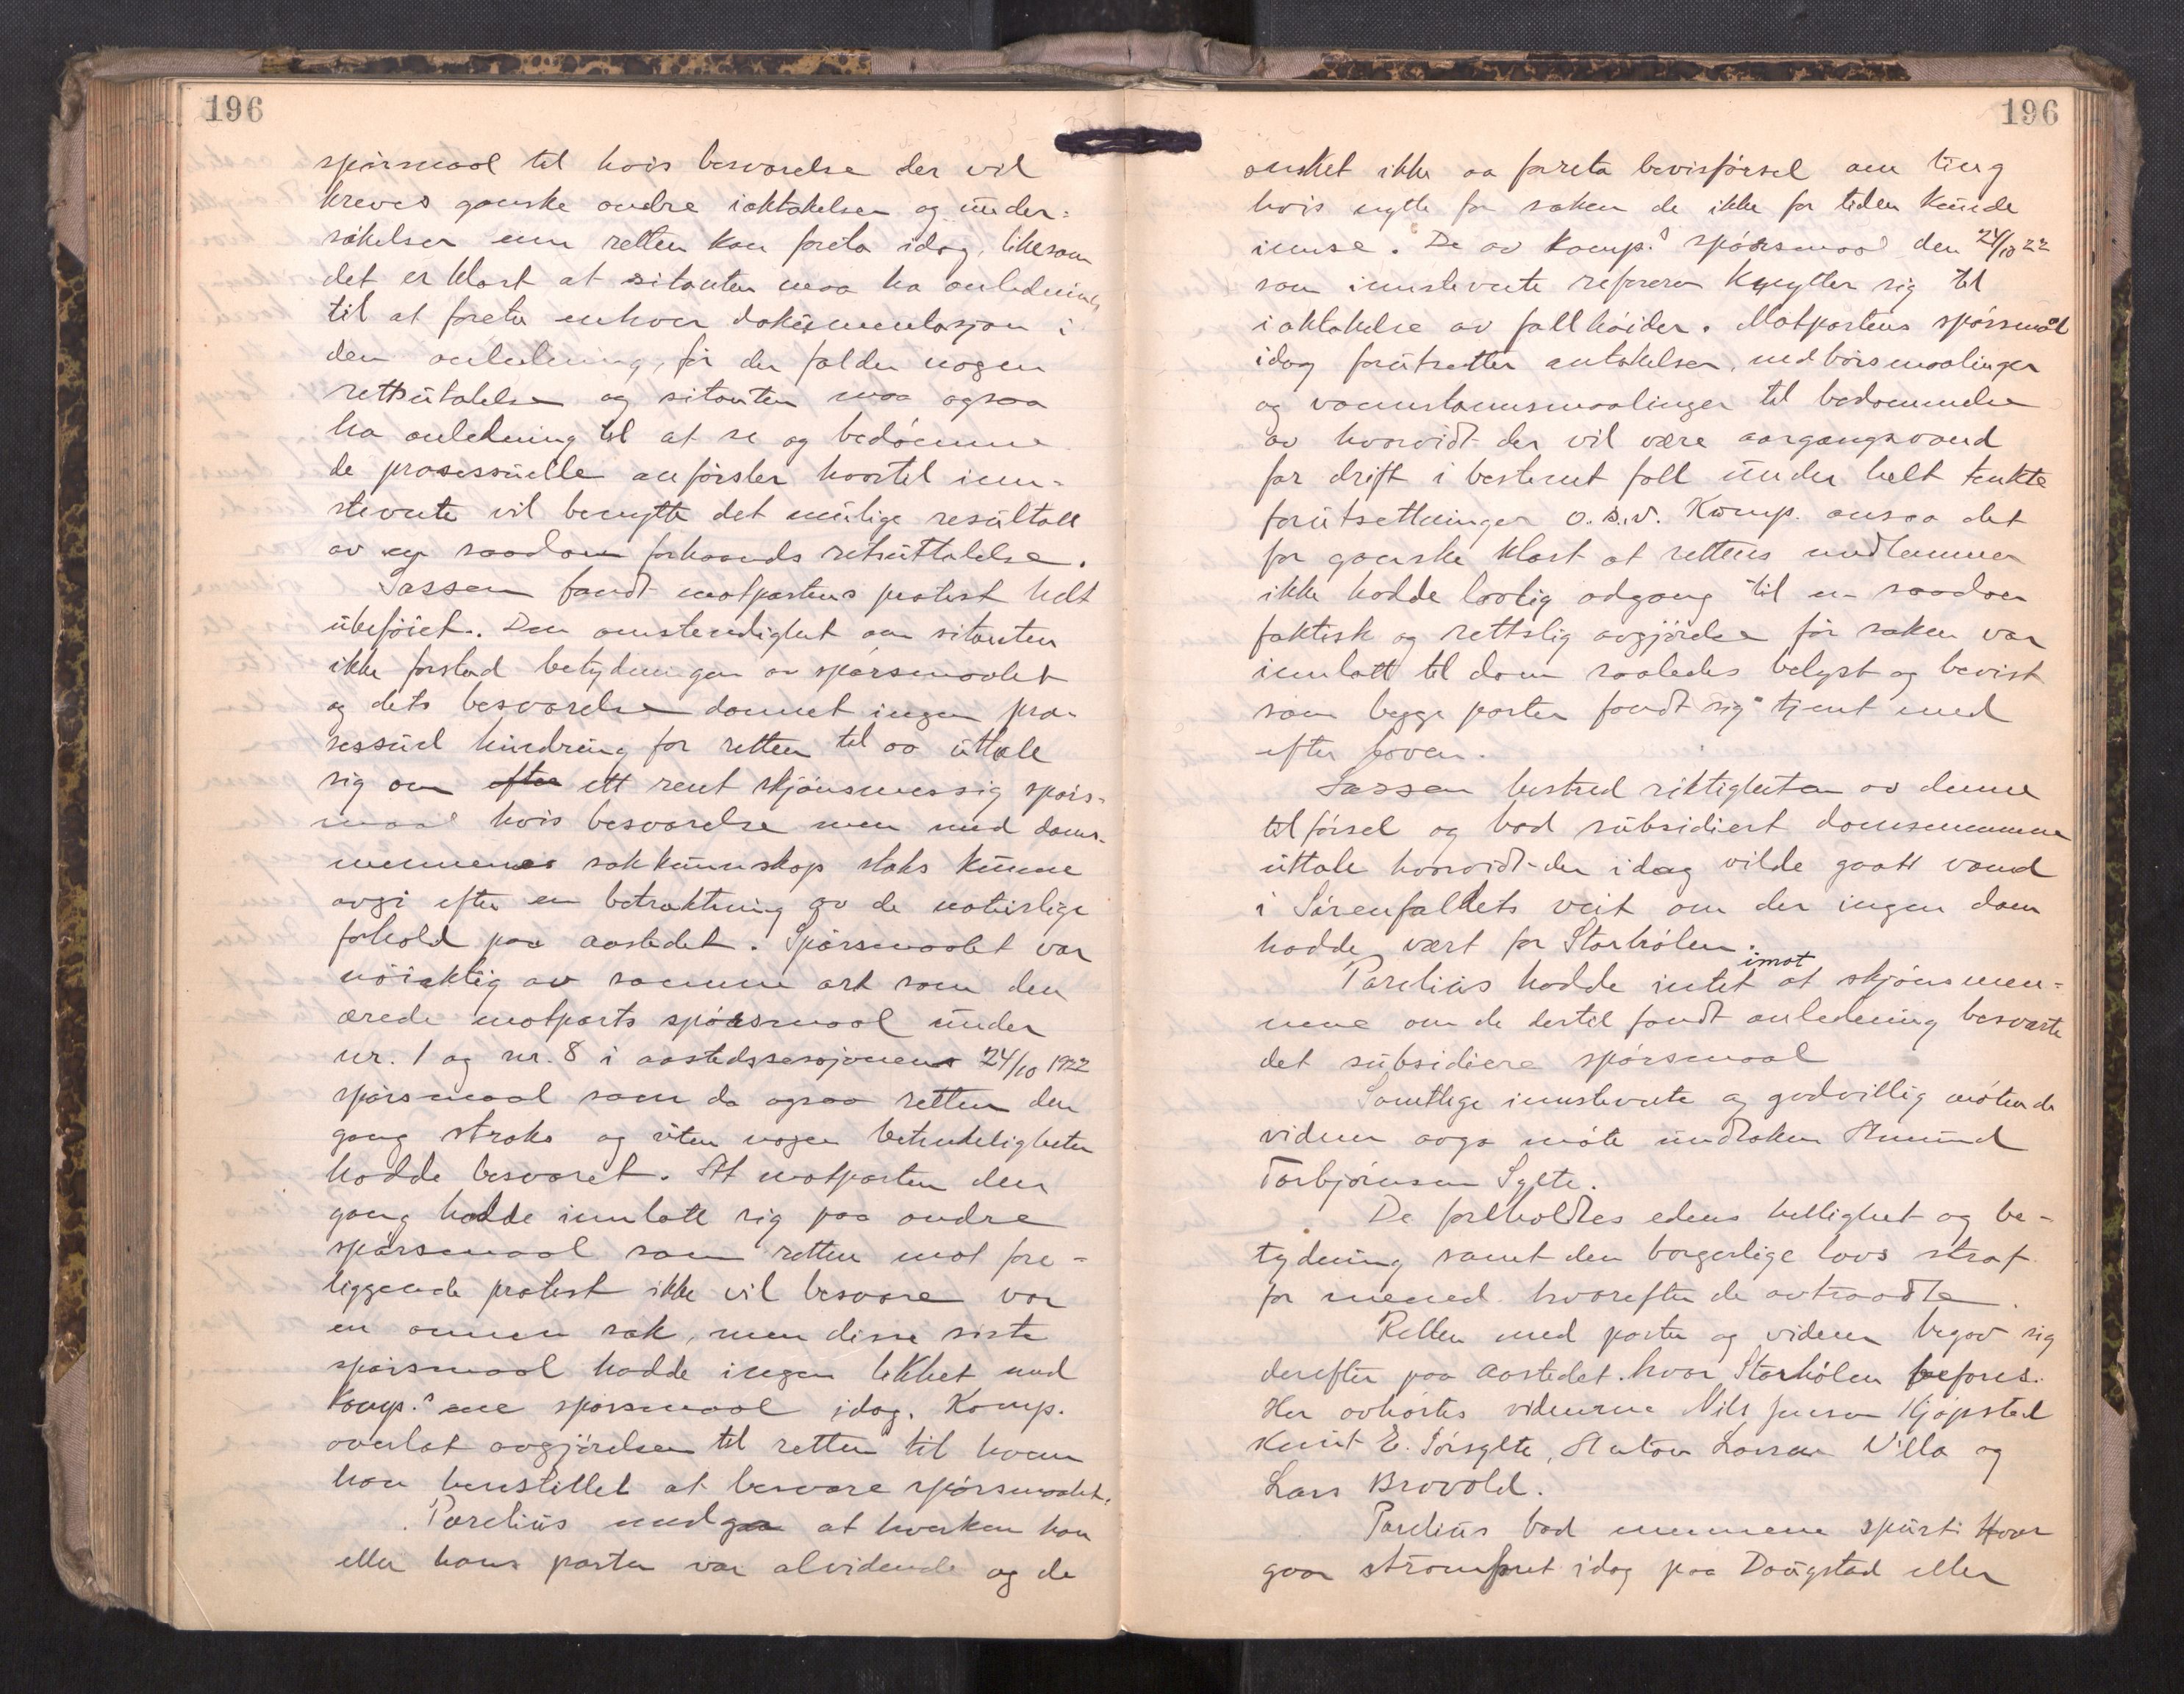 196
spørsmaal til hvis besvarelse der vil
kreves ganske andre iakttakelser og under-
søkelser enn retten kan foreta idag, likesom
det er klart at sitanten maa ha anledning
til at foreta enhver dokumentasjon i
den anledning, før der falder nogen
rettsutalelse og sitanten maa ogsaa
ha anledning til at se og bedømme
de prosessuelle anførsler hvortil inn-
stevnte vil benytte det mulige resultatt
av en saadan forhaands retsuttalelse.
Sassen fandt motpartens protest helt
ubeføiet. Den omstendighet om sitanten
ikke forstod betydningen av spørsmaalet
og dets besvarelse dannet ingen pro-
sessuel hindring for retten til aa uttale
sig om efter ett rent skjønsmessig spørs-
maal hvis besvarelse men med doms-
mennenes sakkunnskap straks kunne
avgi efter en betraktning av de naturlige
forhold paa aastedet. Spørsmaalet var
nøiaktig av samme art som den
ærede motparts spørsmaal under
nr. 1 og nr. 8 i aastedssesjonens 24/10 1922
spørsmaal som da ogsaa retten den
gang straks og uten nogen betenkeligheter
hadde besvaret. At motparten den
gang hadde innlatt sig paa andre
spørsmaal som retten mot fore-
liggende protest ikke vil besvare var
en annen sak, men disse siste
spørsmaal hadde ingen likhet med
Komp.s ene spørsmaal idag. Komp.
overlot avgjørelsen til retten til hvem
han henstillet at besvare spørsmaalet.
Parelius medga at hverken han
eller hans parter var alvidende og de
196
ønsket ikke aa foreta bevisførsel om ting
hvis nytte for saken de ikke for tiden kunde
innse. De av Komp.s spørsmaal den 24/10 22
som innstevnte referer knytter sig til
iaktakelse av fallhøider. Motpartens spørsmål
idag forutsetter antakelser, nedbørsmaalinger
og vannstannsmaalinger til bedømmelse
av hvorvidt der vil være aargangsvand
for drift i bestemt fall under helt tenkte
forutsetninger o.s.v. Komp. ansaa det
for ganske klart at rettens medlemmer
ikke hadde lovlig adgang til en saadan
faktisk og rettslig avgjørelse før saken var
innlatt til dom saaledes belyst og bevist
som begge parter fandt sig tjent med
efter loven.
Sassen bestred riktigheten av denne
tilførsel og bad subsidiert domsmennene
uttale hvorvidt der idag vilde gaatt vand
i Sørenfalldets veit om der ingen dam
hadde vært for Storhølen.
Parelius hadde intet imot at skjønsmen-
nene om de dertil fandt anledning besvarte
det subsidiere spørsmaal
Samtlige innstevnte og godvillig møtende
vidner avga møte undtaken Amund
Torbjørnsen Sylte.
De foreholdtes edens hellighet og be-
tydning samt den borgerlige lovs straf
for mened hvorefter de avtraadte.
Retten med parter og vidner begav sig
derefter paa aastedet hvor Storhølen befares.
Her avhørtes vidnerne Nils Jensen Kjøpstad
Knut E. Sørsylte, Anton Larsen Villa og
Lars Brovold.
Parelius bad mennene spurt: Hvor
gaar strømføret idag paa Daugstad eller